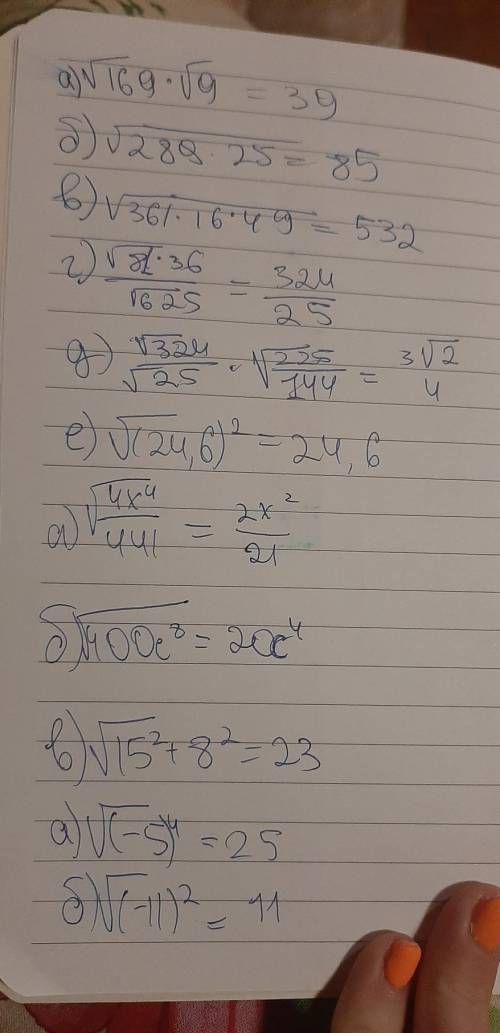 а) √169 · √9 = 39
б) √289 · 25 = 85
в) √361 · 16 · 49 = 532
г) √81 · 36 / √625 = 324 / 25
д) √324 / √25 · √225 / 144 = 3√2 / 4
е) √(24,6)² = 24,6
а) √4x⁴ / 441 = 2x² / 21
б) √400c⁸ = 20c⁴
в) √15² + 8² = 23
а) √(-5)⁴ = 25
б) √(-11)² = 11